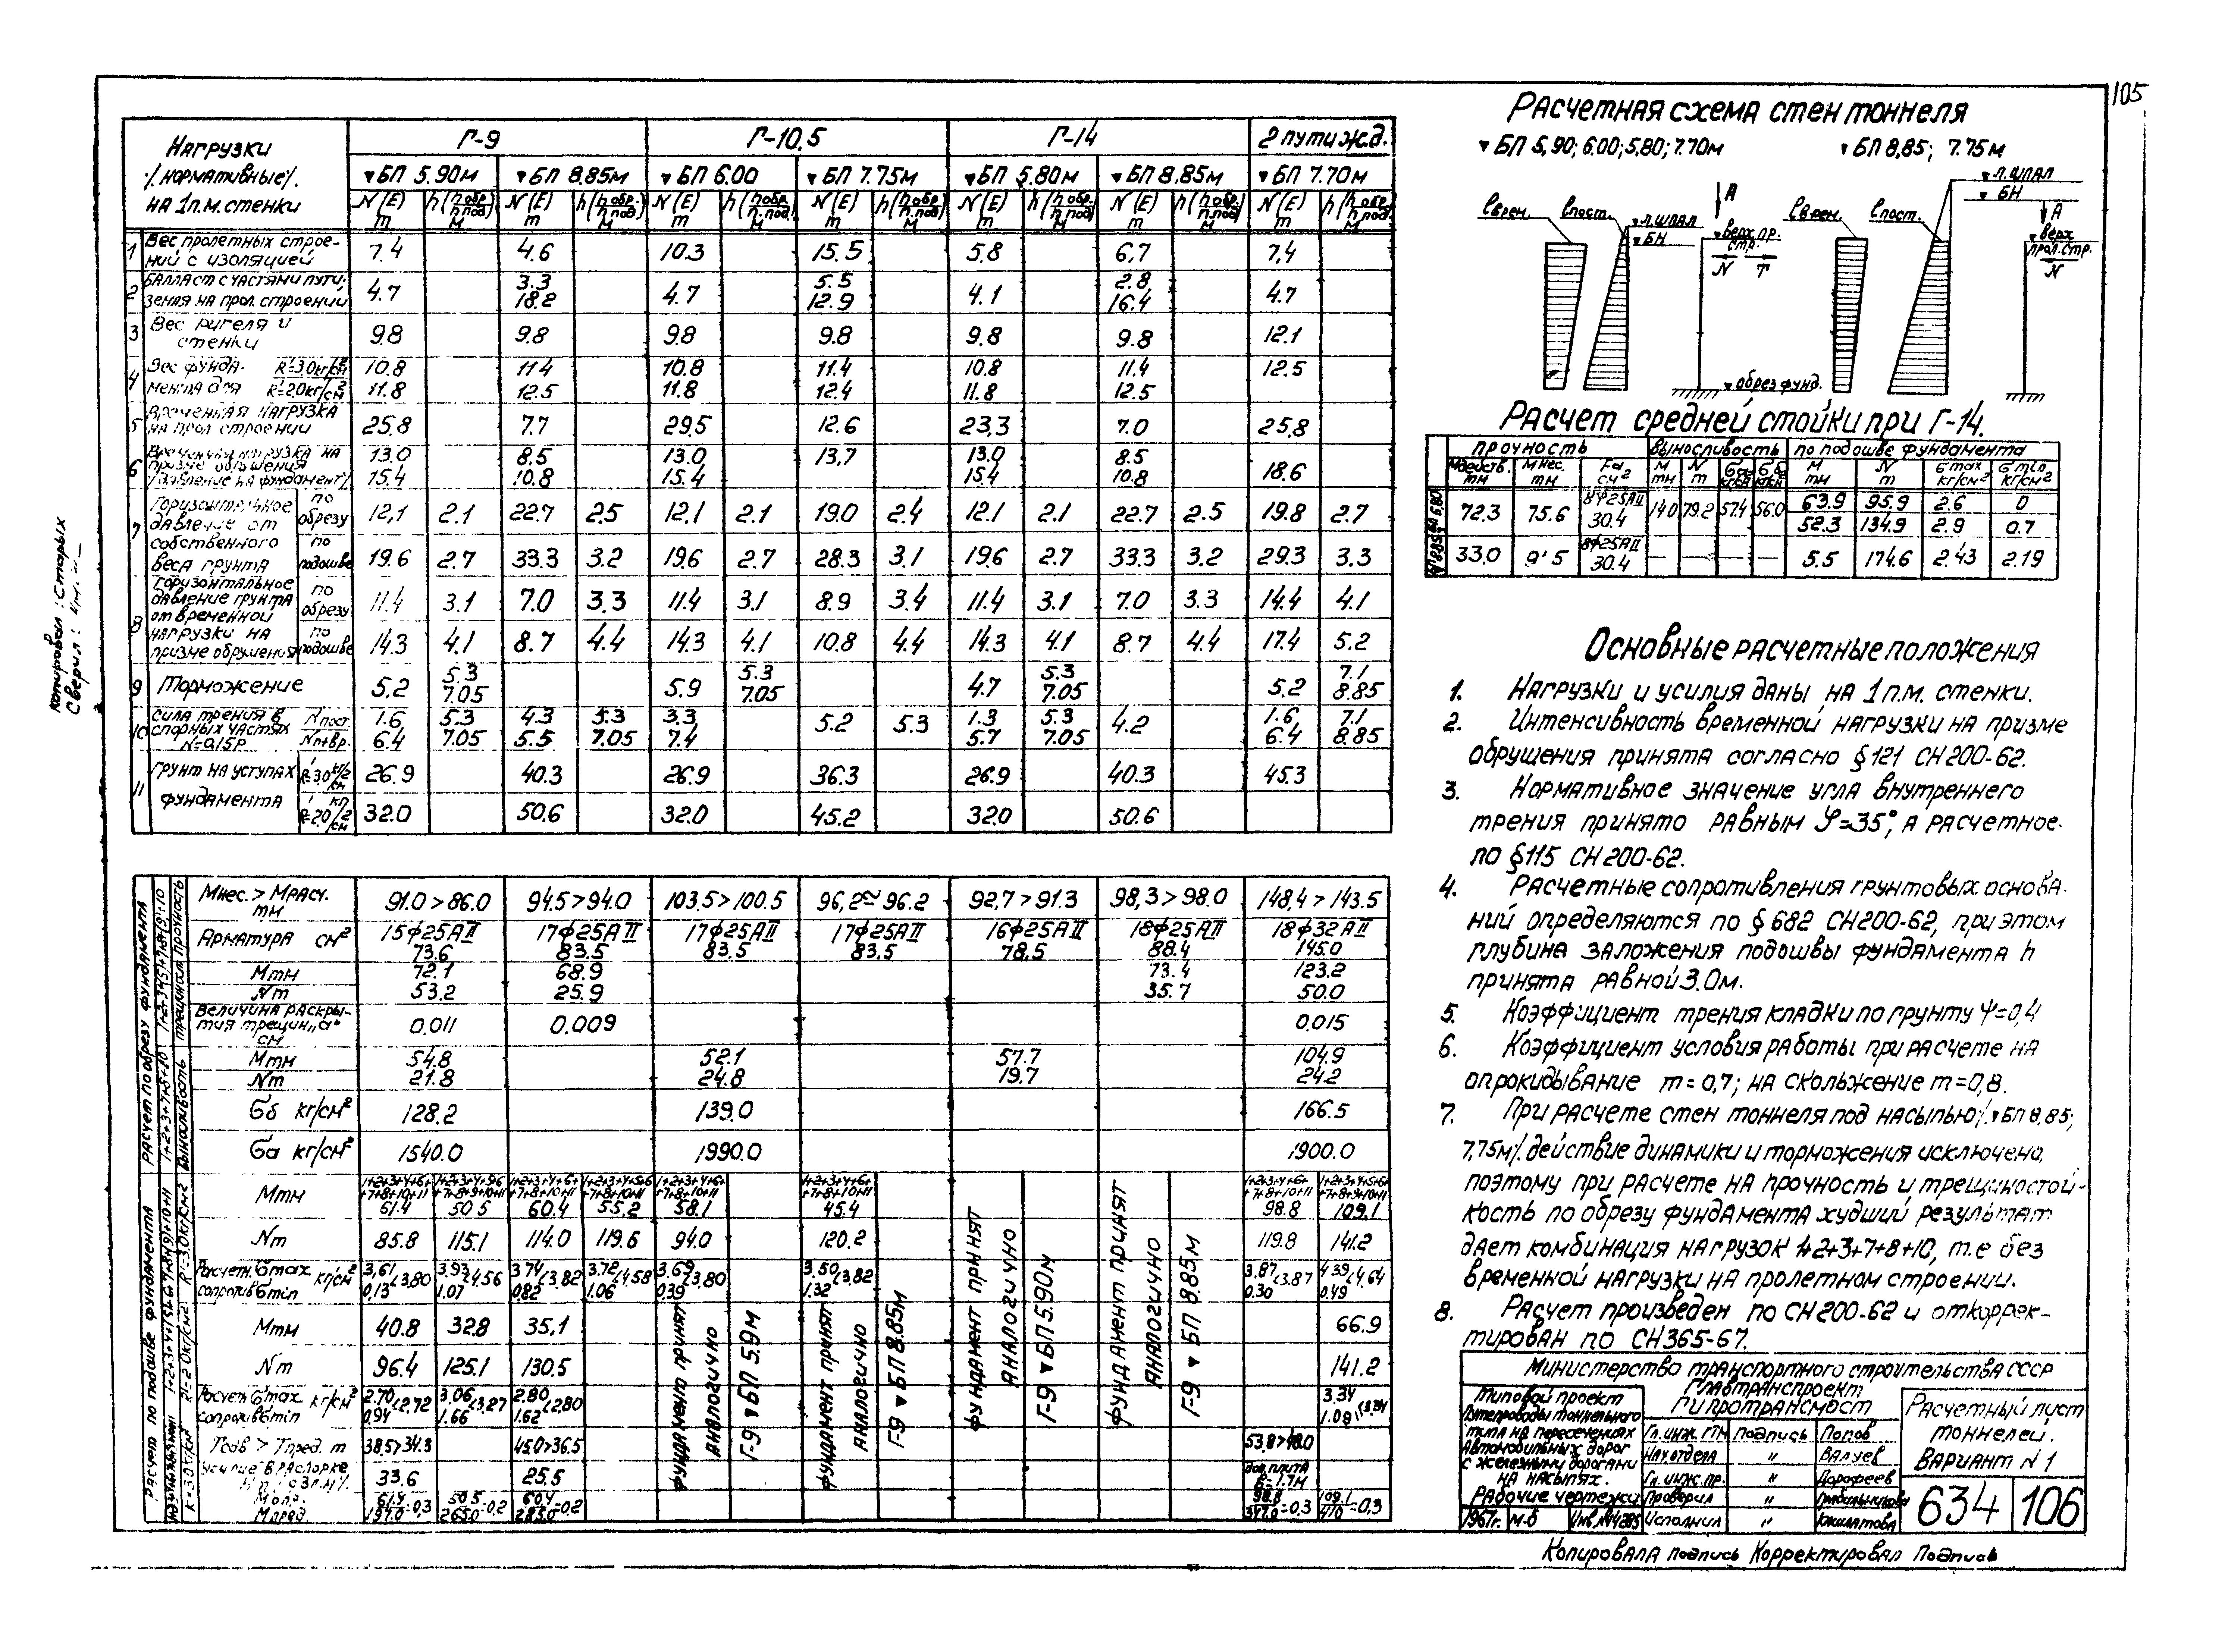 105
НАГРУЗКИ
/НОРМАТИВНЫЕ/.
НА 1 п.м. СТЕНКИ
Г-9 Г-10,5 Г-14 2 пути ж.д.
▼БП 5.90м ▼БП 8.85м ▼БП 6.00 ▼БП 7.75м ▼БП 5.80м ▼БП 8,85м ▼БП 7.70м
N(E) т h(h обр./h под.) м N(E) т h(h обр./h под.) м N(E) т h(h обр./h под.) м N(E) т h(h обр./h под.) м N(E) т h(h обр./h под.) м N(E) т h(h обр./h под.) м N(E) т h(h обр./h под.) м
1 Вес пролетных строений с изоляцией 7.4 4.6 10.3 15.5 5.8 6,7 7,4
2 Балласт с частями пути; земля на прол. строении 4.7 3.3 18.2 4.7 5.5 12.9 4.1 2.8, 16.4 4.7
3 Вес ригеля и стенки 9.8 9.8 9.8 9.8 9.8 9.8 12.1
4 Вес фундамента для R'=3.0кг/см² 10.8 11.4 10.8 11.4 10.8 11.4 12.5
R'=2.0кг/см² 11.8 12.5 11.8 12.4 11.8 12.5
5 Временная нагрузка на прол строении 25,8 7.7 29,5 12.6 23,3 7.0 25,8
6 Временная нагрузка на призме обрушения /давление на фундамент/ 13.0 15.4 8.5 10.8 13.0 15.4 13,7 13.0 15.4 8.5 10.8 18.6
7 Горизонтальное давление от собственного веса грунта
по обрезу 12,1 2.1 22.7 2.5 12,1 2.1 19.0 2.4 12.1 2.1 22.7 2.5 19.8 2.7
по подошве 19.6 2.7 33.3 3.2 19.6 2.7 28.3 3.1 19.6 2.7 33.3 3.2 29.3 3.3
8 Горизонтальное давление грунта от временной нагрузки на призме обрушения
по обрезу 11.4 3.1 7.0 3.3 11.4 3.1 8.9 3.4 11.4 3.1 7.0 3.3 14.4 4.1
по подошве 14.3 4.1 8.7 4.4 14.3 4.1 10.8 4.4 14.3 4.1 8.7 4.4 17.4 5.2
9 Торможение 5.2 5.3 7.05 5.9 5.3 7.05 4.7 5.3 7.05 5.2 7.1 8.85
10 Сила трения в опорных частях N=0.15P
Nпост. 1.6 5.3 4.3 5.3 3.3 5.2 5.3 1.3 5.3 4.2 1.6 7.1
Nп+вр. 6.4 7.05 5.5 7.05 7.4 5.7 7.05 6.4 8.85
11 Грунт на уступах фундамента
R'=3.0 кг/см² 26.9 40.3 26.9 36.3 26.9 40.3 45.3
R'=2.0 кг/см² 32.0 50.6 32.0 45.2 32.0 50.6
Расчет по обрезу фундамента
Прочность
Трещиност
Выносливость
Mнес. > Mрасч. тм 91.0>86.0 94.5>94.0 103.5>100.5 96,2≈96.2 92,7>91.3 98,3>98.0 148,4>143.5
Арматура см² 15ф25АII 73.6 17ф25АII 83.5 17ф25АII 83.5 17ф25АII 83.5 16ф25АII 78.5 18ф25АII 88.4 18ф32АII 145.0
Mтм 72.1 68.9 73.4 123.2
Nт 53.2 25.9 35.7 50.0
Величина раскрытия трещин „a" см 0.011 0.009 0.015
Mтм 54.8 52.1 57.7 104.9
Nт 21.8 24.8 19.7 24.2
Gб кг/см² 128.2 139.0 166.5
Gа кг/см² 1540.0 1990.0 1900.0
Расчет по подошве фундамента
Mтм 1+2+3+4+6+ +7+8+10+11 61.4 50.5 1+2+3+4+6+ +7+8+10+11 60.4 55.2 1+2+3+4+6+ +7+8+10+11 58.1 1+2+3+4+6+ +7+8+10+11 45.4 98.8 109.1
Nт 85.8 115.1 114.0 119.6 94.0 120.2 119.8 141.2
Расчетн. Gmax сопротив Gmin кг/см² 3,61 0,13 <3,80 3.93 1.07 <4.56 3.74 0.82 <3.82 3.72 1.06 <4.58 3.69 0.39 <3.80 3.50 1.32 <3.82 3,87 0.30 <3.87 4.39 0.49 <4,64
Mтм 40.8 32.8 35,1 66.9
Nт 96.4 125.1 130.5 141.2
Расчет Gmax сопротив Gmin кг/см² 2.70 0.94 <2.72 3.06 1.66 <3.27 2.80 1.62 <2.80 3.34 1.09
Tсдв > Tпред. т 38.5>34.3 45.0>36.5
Усилие в распорке 33.6 25.5
Mопр. Mпред. 61.4/197.0=0,3 50.5/265.0=0.2 60.4/285.0=0.2 98.8/347.0=0.3 109.1 =0,3
Фундамент принят аналогично Г-9 ▼БП 5.9м
Фундамент принят аналогично Г-9 ▼БП 8.85м
Фундамент принят аналогично Г-9 ▼БП 5.90м
Фундамент принят аналогично Г-9 ▼БП 8.85м
Копировал: Старых
Сверил:
Расчетная схема стен тоннеля
▼БП 5,90; 6.00; 5,80; 7.70м ▼БП 8,85; 7.75м
ℓврем. ℓпост. ▼п.шпал ▼БН А ▼верх пр. стр. N Т ▼обрез фунд.
ℓврем. ℓпост. ▼п.шпал ▼БН А ▼верх прол.стр. N
Расчет средней стойки при Г-14.
прочность выносливость по подошве фундамента
Mдейств. тм Mнес. тм Fа см² M тм N т Gа кг/см Gб кг/см M тм N т Gmax кг/см² Gmin кг/см²
72.3 75.6 8ф25АII 30.4 14.0 79.2 57.4 56.0 63.9 95.9 2.6 0
52.3 134.9 2.9 0.7
33.0 8ф25АII 30.4 — — — — 5.5 174.6 2.43 2.19
Основные расчетные положения
1. Нагрузки и усилия даны на 1 п.м. стенки.
2. Интенсивность временной нагрузки на призме
обрушения принята согласно §121 СН 200-62.
3. Нормативное значение угла внутреннего
трения принято равным φ=35°, а расчетное-
по §115 СН 200-62.
4. Расчетные сопротивления грунтовых основа-
ний определяются по §682 СН200-62, при этом
глубина заложения подошвы фундамента h
принята равной 3.0м.
5. Коэффициент трения кладки по грунту Ψ=0,4
6. Коэффициент условия работы при расчете на
опрокидывание m=0.7; на скольжение m=0,8.
7. При расчете стен тоннеля под насыпью /▼БП 8,85;
7,75м/ действие динамики и торможения исключено,
поэтому при расчете на прочность и трещиностой-
кость по обрезу фундамента худший результат
дает комбинация нагрузок 1+2+3+7+8+10, т.е без
временной нагрузки на пролетном строении.
8. Расчет произведен по СН200-62 и откоррек-
тирован по СН365-67.
Министерство транспортного строительства СССР
Главтранспроект
Гипротрансмост
Типовой проект
Путепроводы тоннельного
типа на пересечениях
автомобильных дорог
с железными дорогами
на насыпях.
Рабочие чертежи
1967г. М-б Инв.№44285
Гл.инж. ГТМ подпись Попов
Нач.отдела " Валуев
Гл.инж.пр. " Дорофеев
Проверил "
Исполнил "
Расчетный лист
тоннелей.
Вариант N 1
634 106
Копировала подпись Корректировал Подпись